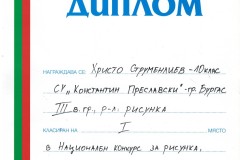 ДИПЛОМ
НАГРАЖДАВА СЕ Христо Струменлиев - 10 клас
СУ „Константин Преславски" - гр. Бургас
III в. гр., р-л. рисунка
КЛАСИРАН НА I МЯСТО
в Национален конкурс за рисунка,